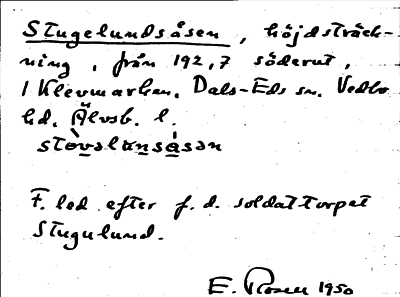 Stugelundsåsen, höjdsträck-
ning, från 192,7 söderut,
i Klevmarken. Dals-Eds sn. Vedbo
hd. Älvsb. l.
stòvəlun̲sásən
F. led efter f. d. soldattorpet
Stugulund.
E. Rosen 1950